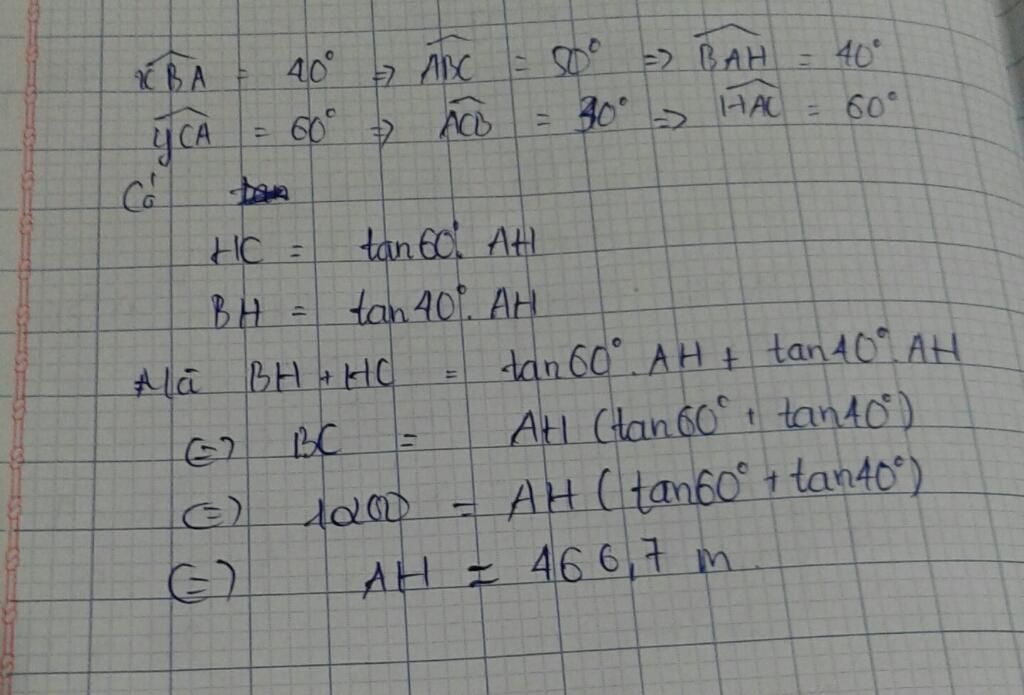 xBA = 40° => ABC = 50° => BAH = 40°
yCA = 60° => ACB = 30° => HAC = 60°
Có
HC = tan60°. AH
BH = tan40°. AH
Mà BH + HC = tan60°. AH + tan40°. AH
<=> BC = AH (tan60° + tan40°)
<=> 1200 = AH (tan60° + tan40°)
<=> AH = 466,7 m.